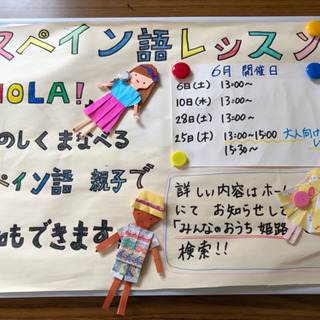 スペイン語レッスン
HOLA!
のしく まなべる
ペイン語 親子で
もできます
6月 開催日
6日(土) 13:00〜
10日(水) 13:00〜
28日(土) 13:00〜
25日(木) 13:00〜15:00 大人向け
15:30〜
詳しい内容はホー
にて お知らせして
「みんなのおうち 姫路
検索!!